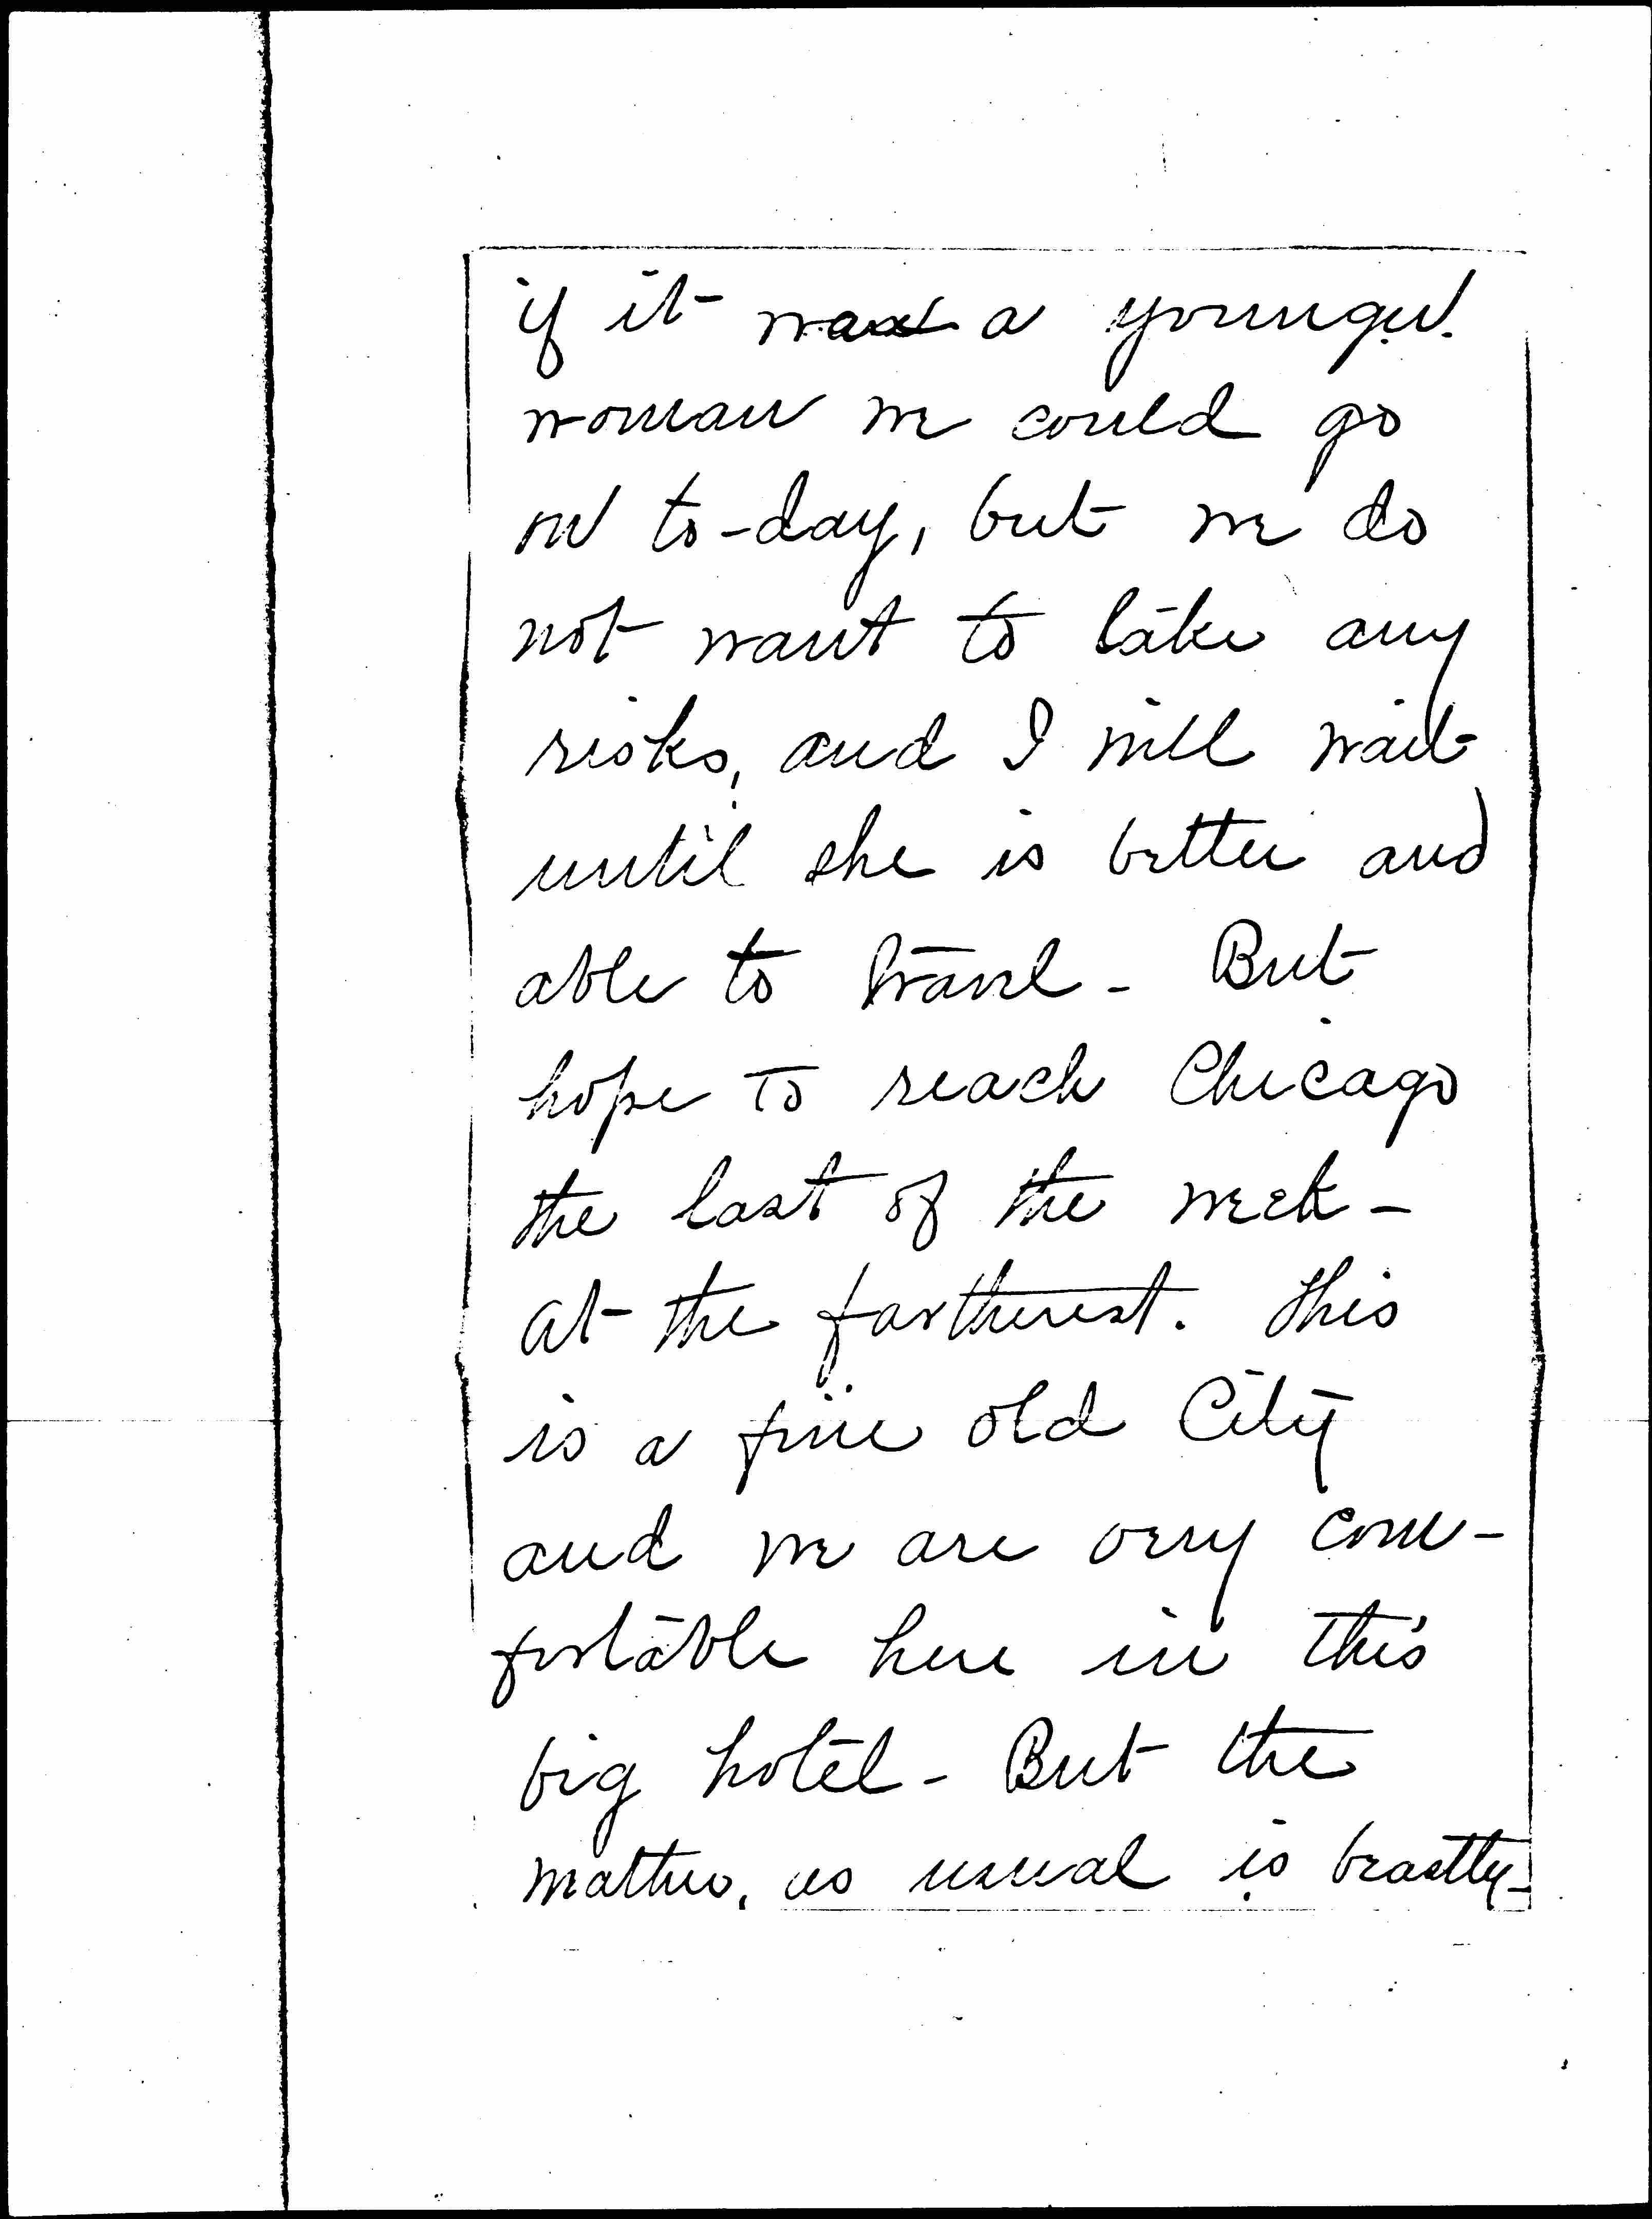 if it was a younger
woman we could go
on to-day, but we do
not want to take any
risks, and I will wait
until she is better and
able to travel - But
hope to reach Chicago
the last of the week -
at the fartherest. This
is a fine old City
and we are very com-
fortable here in this
big hotel - But the
as usual is beastly -